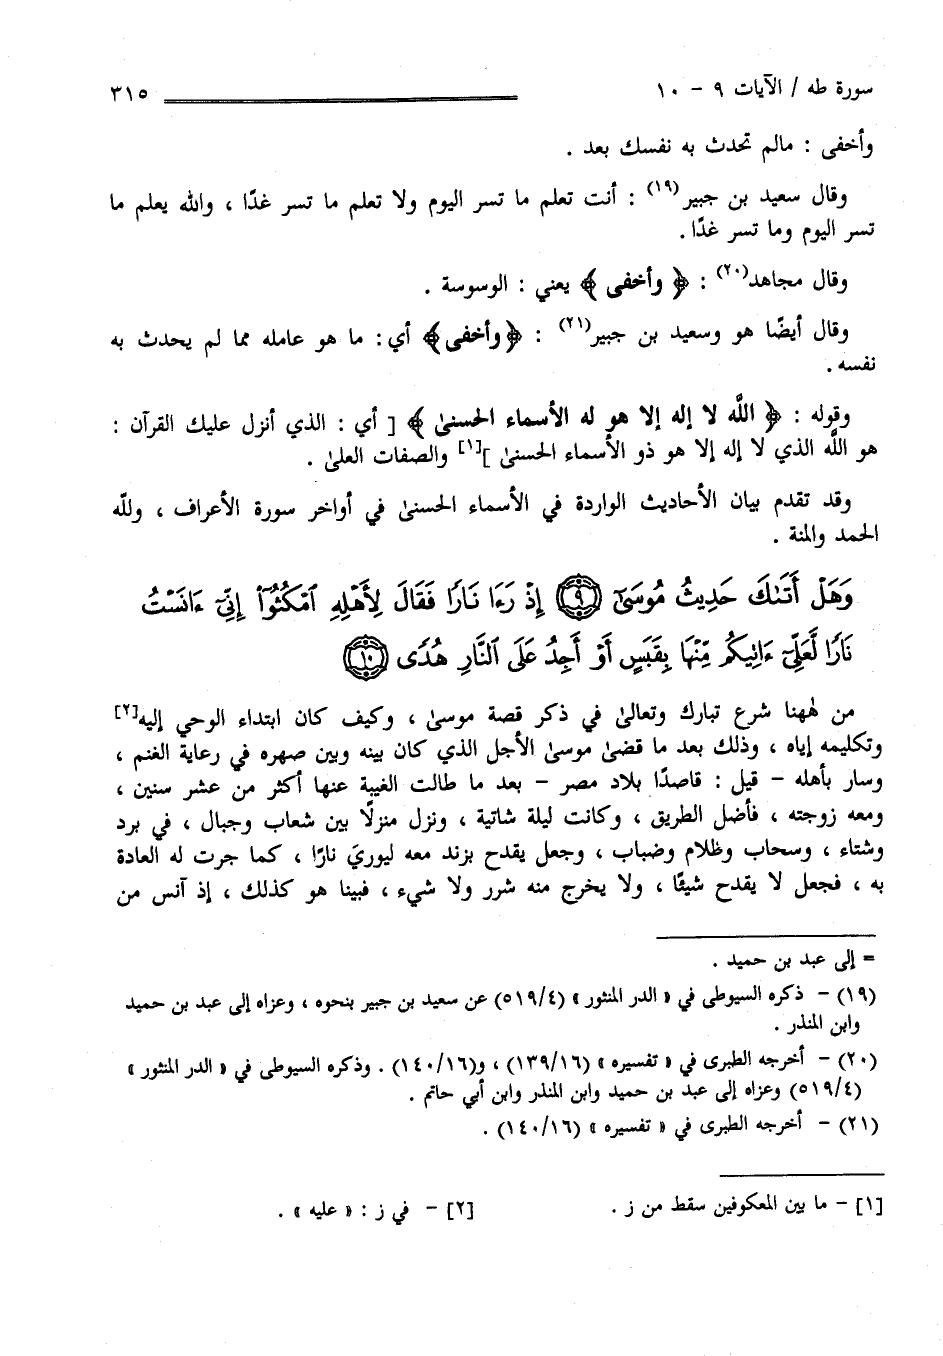 سورة طه / الآيات ٩ - ١٠ ٣١٥
وأخفى : مالم تحدث به نفسك بعد .
وقال سعيد بن جبير(١٩) : أنت تعلم ما تسر اليوم ولا تعلم ما تسر غدًا ، والله يعلم ما
تسر اليوم وما تسر غدًا .
وقال مجاهد(٢٠) : ﴿ وأخفى ﴾ يعني : الوسوسة .
وقال أيضًا هو وسعيد بن جبير(٢١) : ﴿ وأخفى ﴾ أي : ما هو عامله مما لم يحدث به
نفسه .
وقوله : ﴿ اللَّه لا إله إلا هو له الأسماء الحسنىٰ ﴾ [ أي : الذي أنزل عليك القرآن :
هو اللَّه الذي لا إله إلا هو ذو الأسماء الحسنىٰ ][١] والصفات العلىٰ .
وقد تقدم بيان الأحاديث الواردة في الأسماء الحسنىٰ في أواخر سورة الأعراف ، وللّه
الحمد والمنة .
وَهَلْ أَتَىٰكَ حَدِيثُ مُوسَىٰٓ ٩ إِذْ رَءَا نَارًا فَقَالَ لِأَهْلِهِ ٱمْكُثُوٓا۟ إِنِّىٓ ءَانَسْتُ
نَارًا لَّعَلِّىٓ ءَاتِيكُم مِّنْهَا بِقَبَسٍ أَوْ أَجِدُ عَلَى ٱلنَّارِ هُدًى ١٠
من لههنا شرع تبارك وتعالىٰ في ذكر قصة موسىٰ ، وكيف كان ابتداء الوحي إليه[٢]
وتكليمه إياه ، وذلك بعد ما قضىٰ موسىٰ الأجل الذي كان بينه وبين صهره في رعاية الغنم ،
وسار بأهله - قيل : قاصدًا بلاد مصر - بعد ما طالت الغيبة عنها أكثر من عشر سنين ،
ومعه زوجته ، فأضل الطريق ، وكانت ليلة شاتية ، ونزل منزلًا بين شعاب وجبال ، في برد
وشتاء ، وسحاب وظلام وضباب ، وجعل يقدح بزند معه ليوريَ نارًا ، كما جرت له العادة
به ، فجعل لا يقدح شيئًا ، ولا يخرج منه شرر ولا شيء ، فبينا هو كذلك ، إذ آنس من
= إلى عبد بن حميد .
(١٩) - ذكره السيوطى في « الدر المنثور » (٥١٩/٤) عن سعيد بن جبير بنحوه ، وعزاه إلى عبد بن حميد
وابن المنذر .
(٢٠) - أخرجه الطبرى في « تفسيره » (١٣٩/١٦) ، و(١٤٠/١٦) . وذكره السيوطى في « الدر المنثور »
(٥١٩/٤) وعزاه إلى عبد بن حميد وابن المنذر وابن أبي حاتم .
(٢١) - أخرجه الطبرى في « تفسيره » (١٤٠/١٦) .
[١] - ما بين المعكوفين سقط من ز . [٢] - في ز : « عليه » .